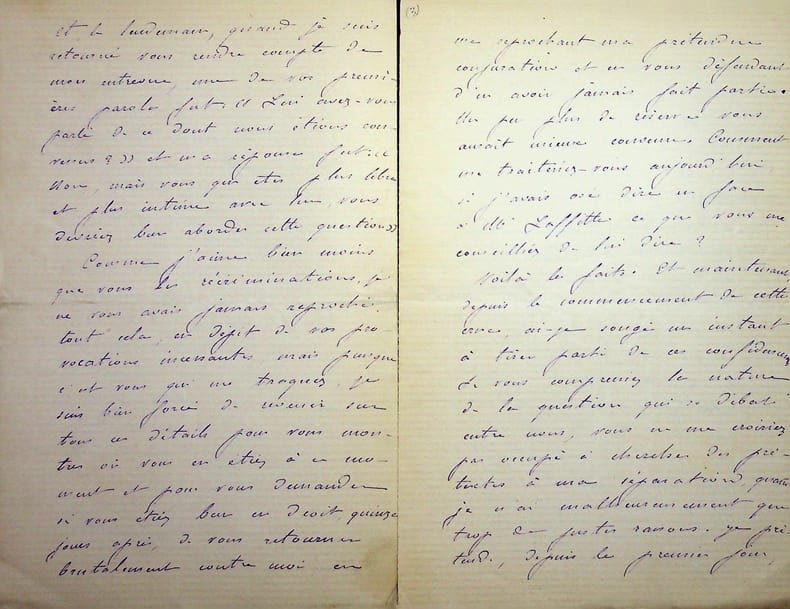 et le lendemain, quand je suis
retourné vous rendre compte de
mon entrevue, une de vos premi-
ères paroles fut « Lui avez-vous
parlé de ce dont nous étions con-
venus ? » et ma réponse fut : «
Non, mais vous qui êtes plus libre
et plus intime avec lui, vous
devriez bien aborder cette question »
Comme j'aime bien moins
que vous les récriminations, je
ne vous avais jamais reproché
tout cela, en dépit de vos pro-
vocations incessantes mais puisque
c'est vous qui me traquez, je
suis bien forcé de revenir sur
tous ces détails pour vous mon-
trer où vous en étiez à ce mo-
ment et pour vous demander
si vous étiez bien en droit, quinze
jours après, de vous retourner
brutalement contre moi en
(3)
me reprochant ma prétendue
conjuration et en vous défendant
d'en avoir jamais fait partie.
Un peu plus de réserve vous
aurait mieux convenu. Comment
me traiteriez-vous aujourd'hui
si j'avais osé dire en face
à Mr Laffitte ce que vous me
conseilliez de lui dire ?
Voilà les faits. Et maintenant,
depuis le commencement de cette
crise, ai-je songé un instant
à tirer parti de ces confidences
Si vous compreniez la nature
de la question qui se débat
entre nous, vous ne me croiriez
pas occupé à chercher des pré-
textes à ma séparation, quand
je n'ai malheureusement que
trop de justes raisons. Je pré-
tends, depuis le premier jour,